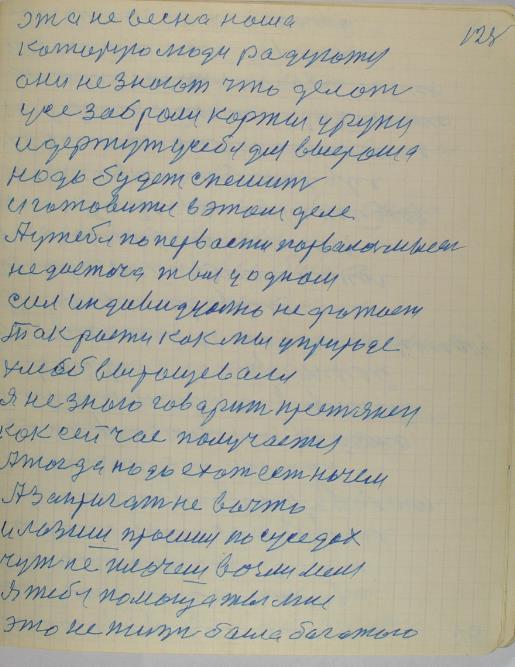 128
эта не весна наша
которую люди радуготся
они не знают что делот
усе заброли коржы у руки
и держут у себя для выероша
нодь будеж спешит
и готовити в этом деле
А у тебя по первасти порвалась
не досточа твоя у одном
сил индивидуольно не
Так рости как мы у природе
хлеб вырощевали
я не знаю говарит крестянен
как сейчас получаетя
А тогда нодь ехот сет ночем
А запригат не вочто
и лозиш просиш по суседох
чуть не плочеш возли меш
я тебя помоща ты мне
это не жизн была богатого